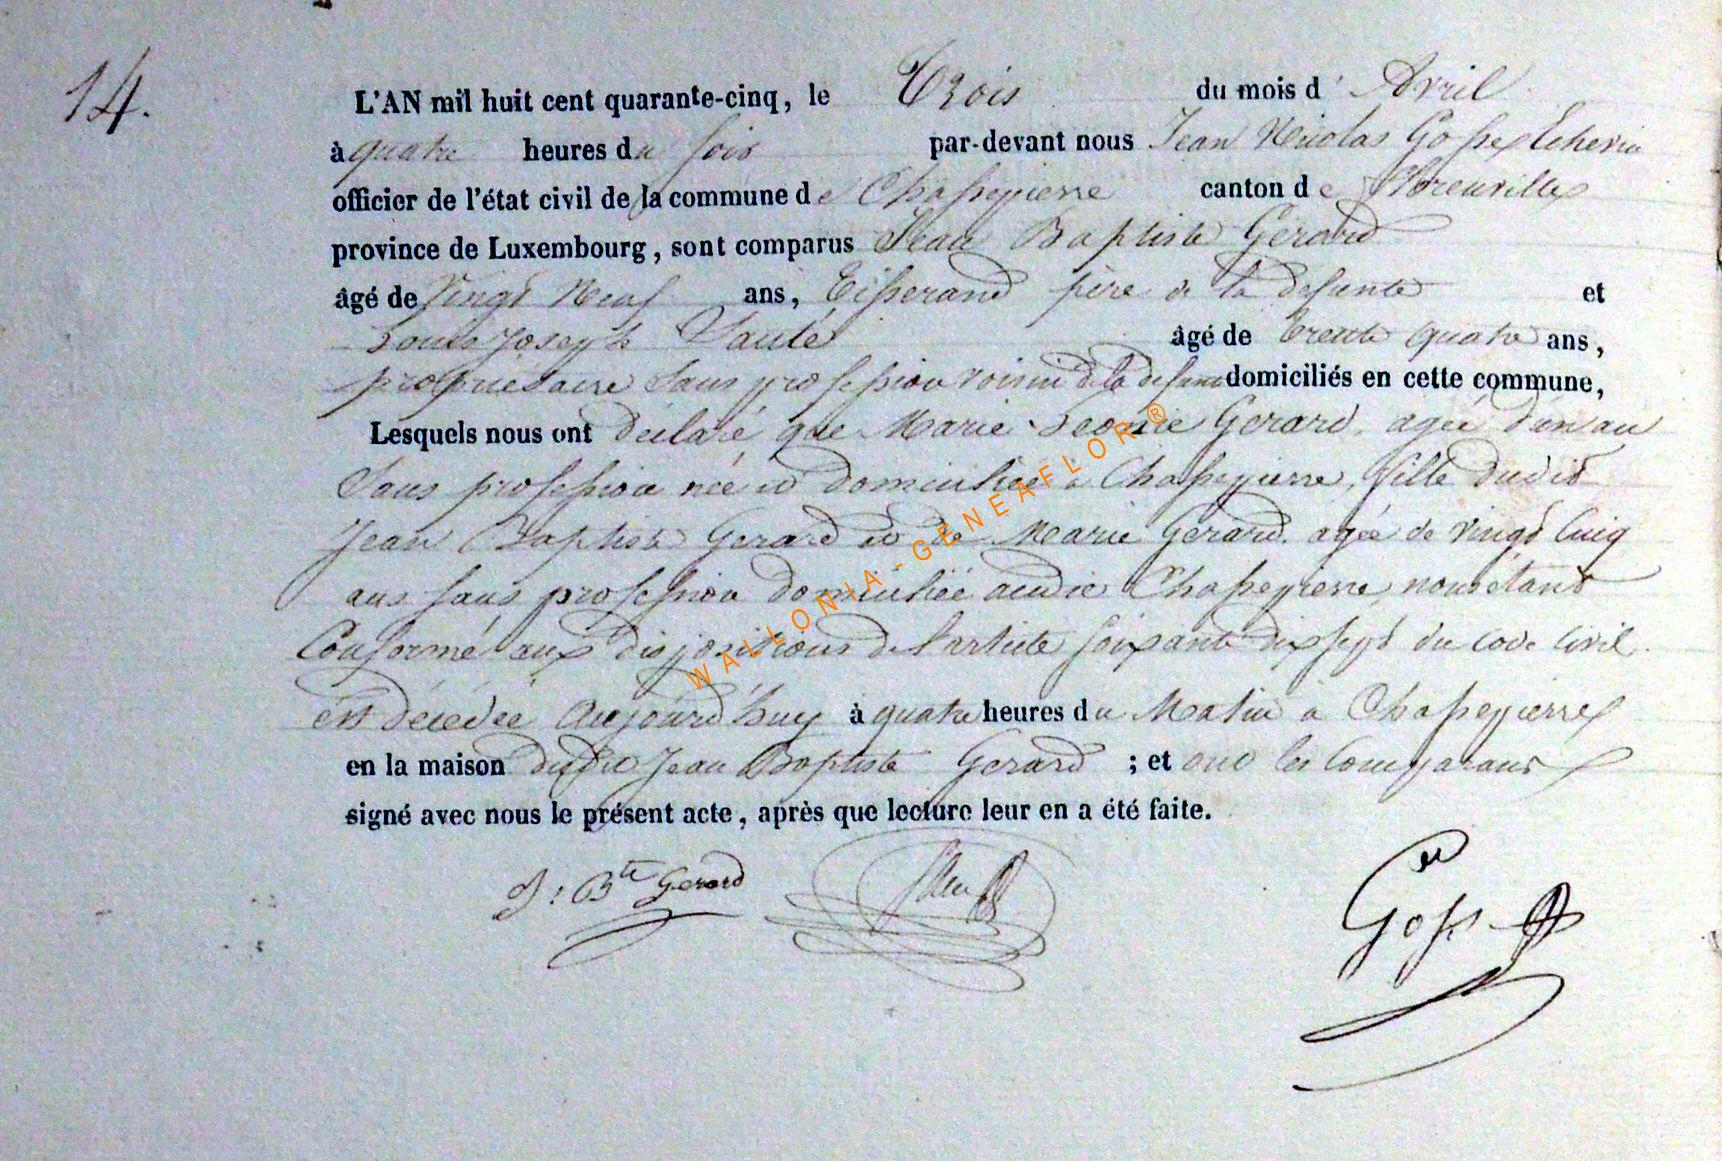 14.
L'AN mil huit cent quarante-cinq, le Trois du mois d' Avril
à quatre heures du soir par-devant nous Jean Nicolas Gosse Echevin
officier de l'état civil de la commune de Chassepierre canton de Florenville
province de Luxembourg, sont comparus Jean Baptiste Gérard
âgé de Vingt Neuf ans, Tisserand père de la défunte et
Louis Joseph âgé de trente quatre ans,
propriétaire sans profession voisin de la défunte domiciliés en cette commune,
Lesquels nous ont déclaré que Marie Léonie Gerard, agée d'un an
Sans profession née et domiciliée à Chassepierre, fille dudit
Jean Baptiste Gerard et de Marie Gerard, agée de vingt Cinq
ans sans profession domiciliée audit Chassepierre, nous étant
Conformé aux dispositions de l'article soixante dix sept du code Civil
est décédée Aujourd'huy à quatre heures du Matin à Chassepierre
en la maison dudit Jean Baptiste Gerard ; et ont les Comparans
signé avec nous le présent acte, après que lecture leur en a été faite.
J: Bte Gerard Gosse
WALLONIA-GENEAFLOR®